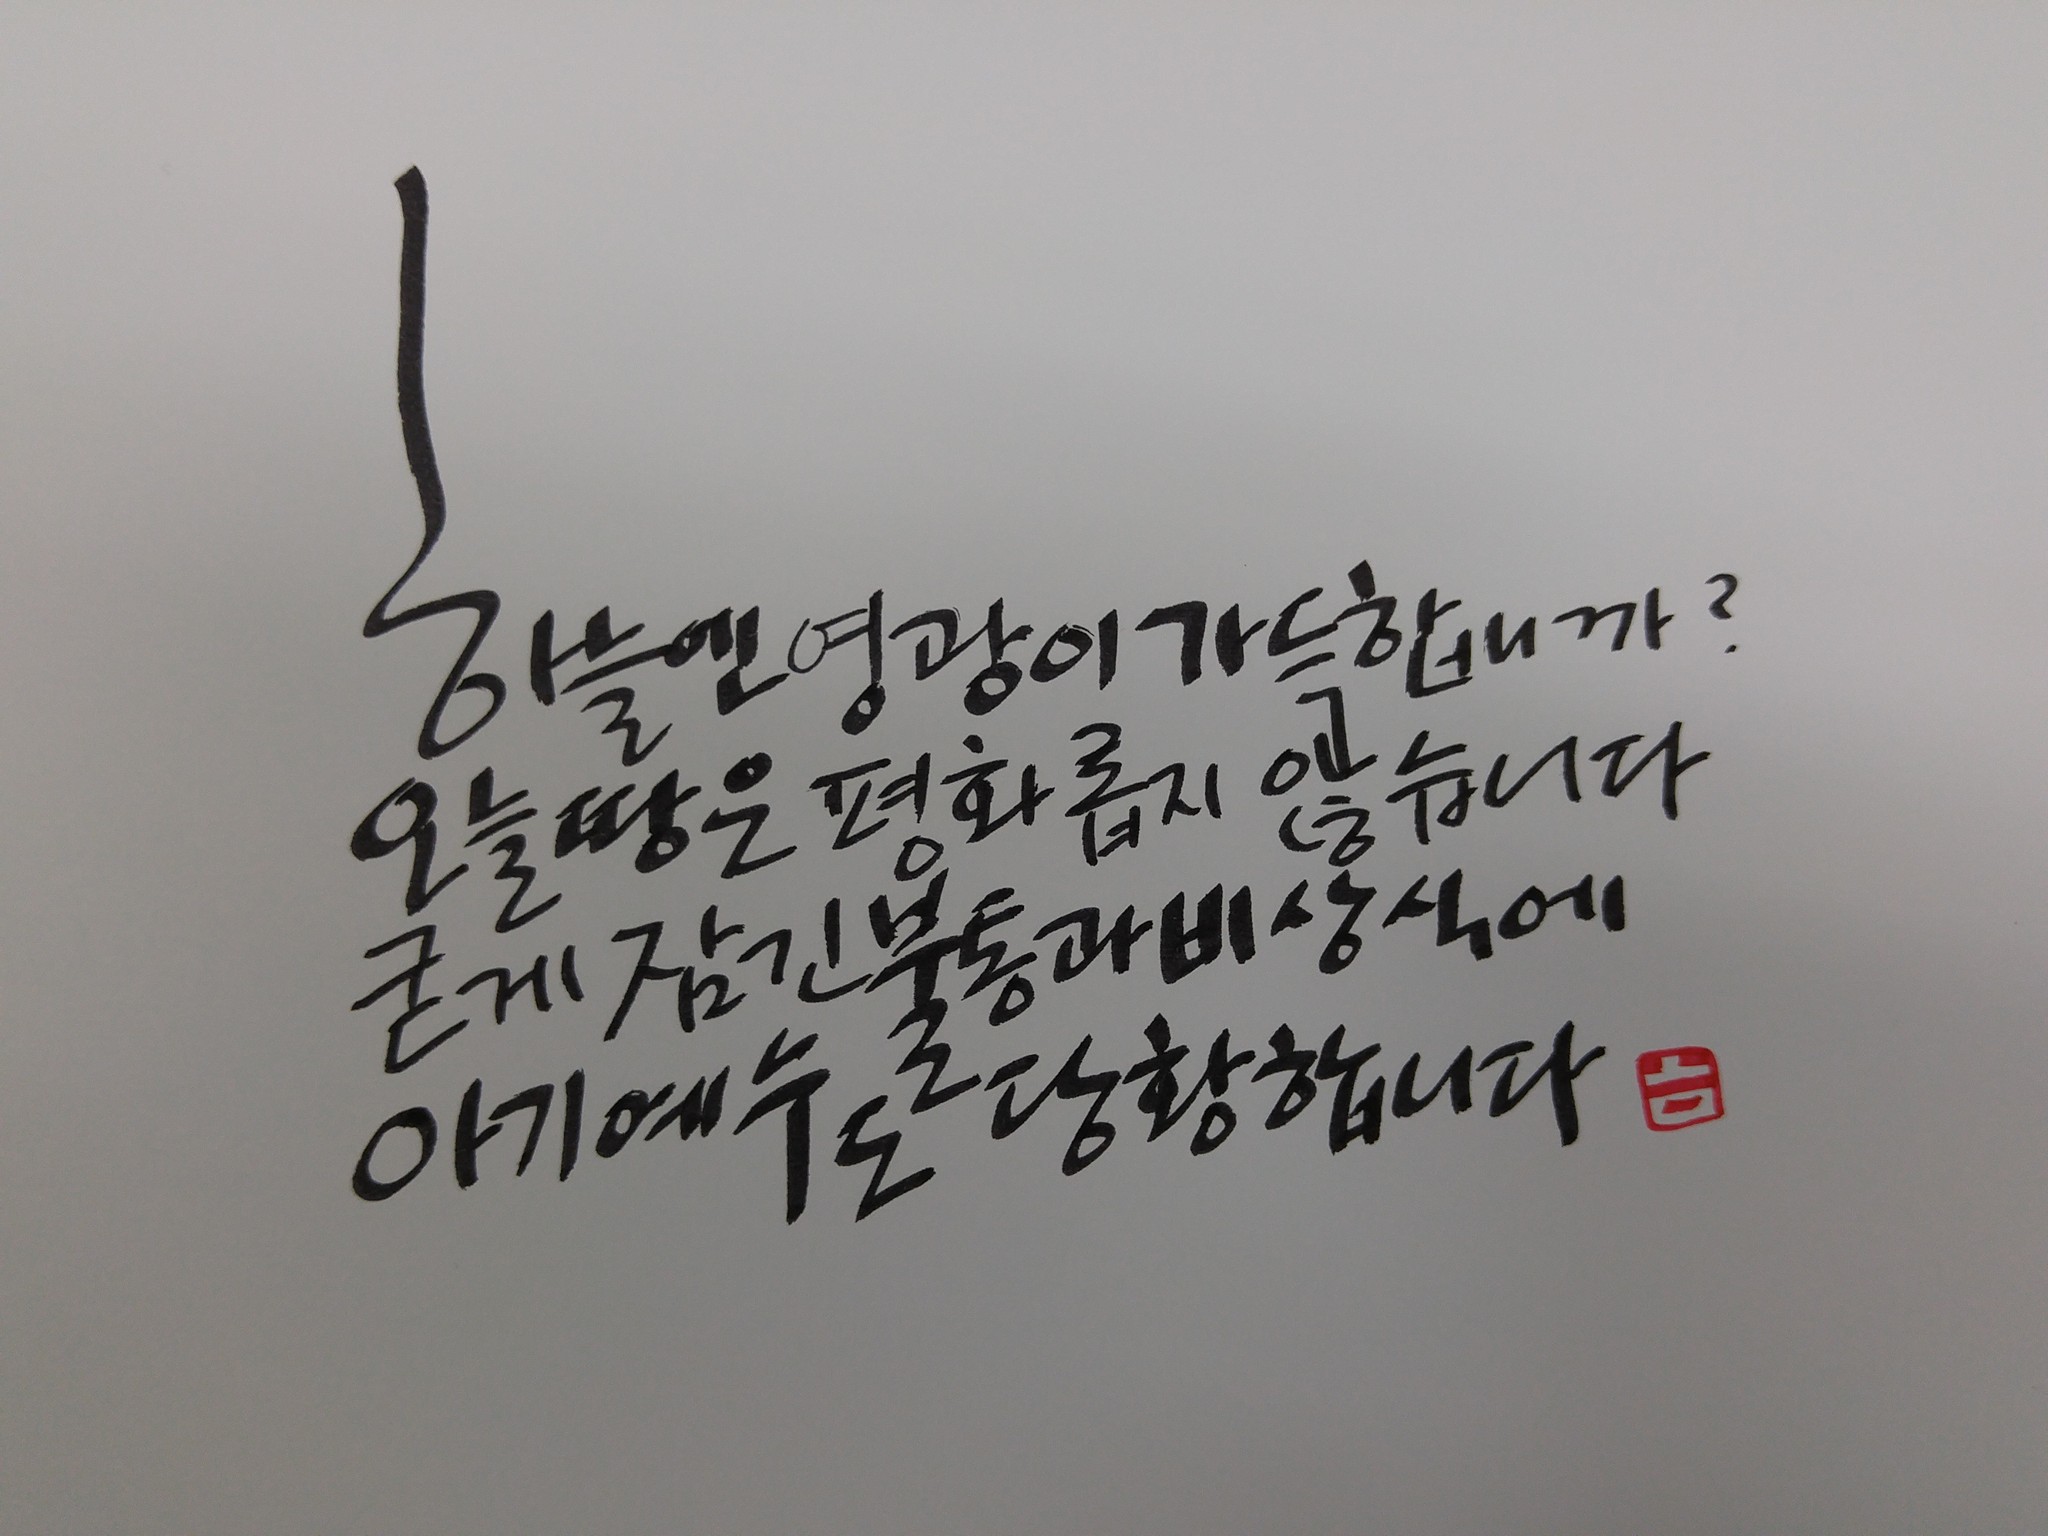 하늘엔 영광이 가득합니까?
오늘 땅은 평화롭지 않습니다
굳게 잠긴 불통과 비상식에
아기예수도 당황합니다